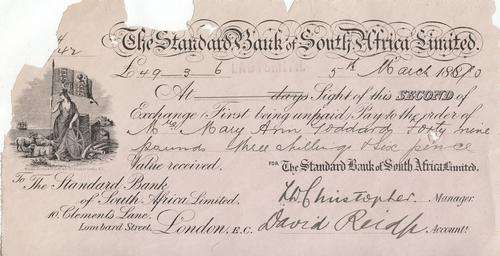 The Standard Bank of South Africa Limited.
£49 3 6 5th March 18
At days Sight of this SECOND of
Exchange (First being unpaid) Pay to the order of
Mrs Mary Ann Goddard forty nine
pounds three shillings & six pence
Value received. FOR The Standard Bank of South Africa Limited.
To The Standard Bank
of South Africa Limited. Christopher. Manager
10, Clements Lane,
Lombard Street, London, E.C. David Reid Account!